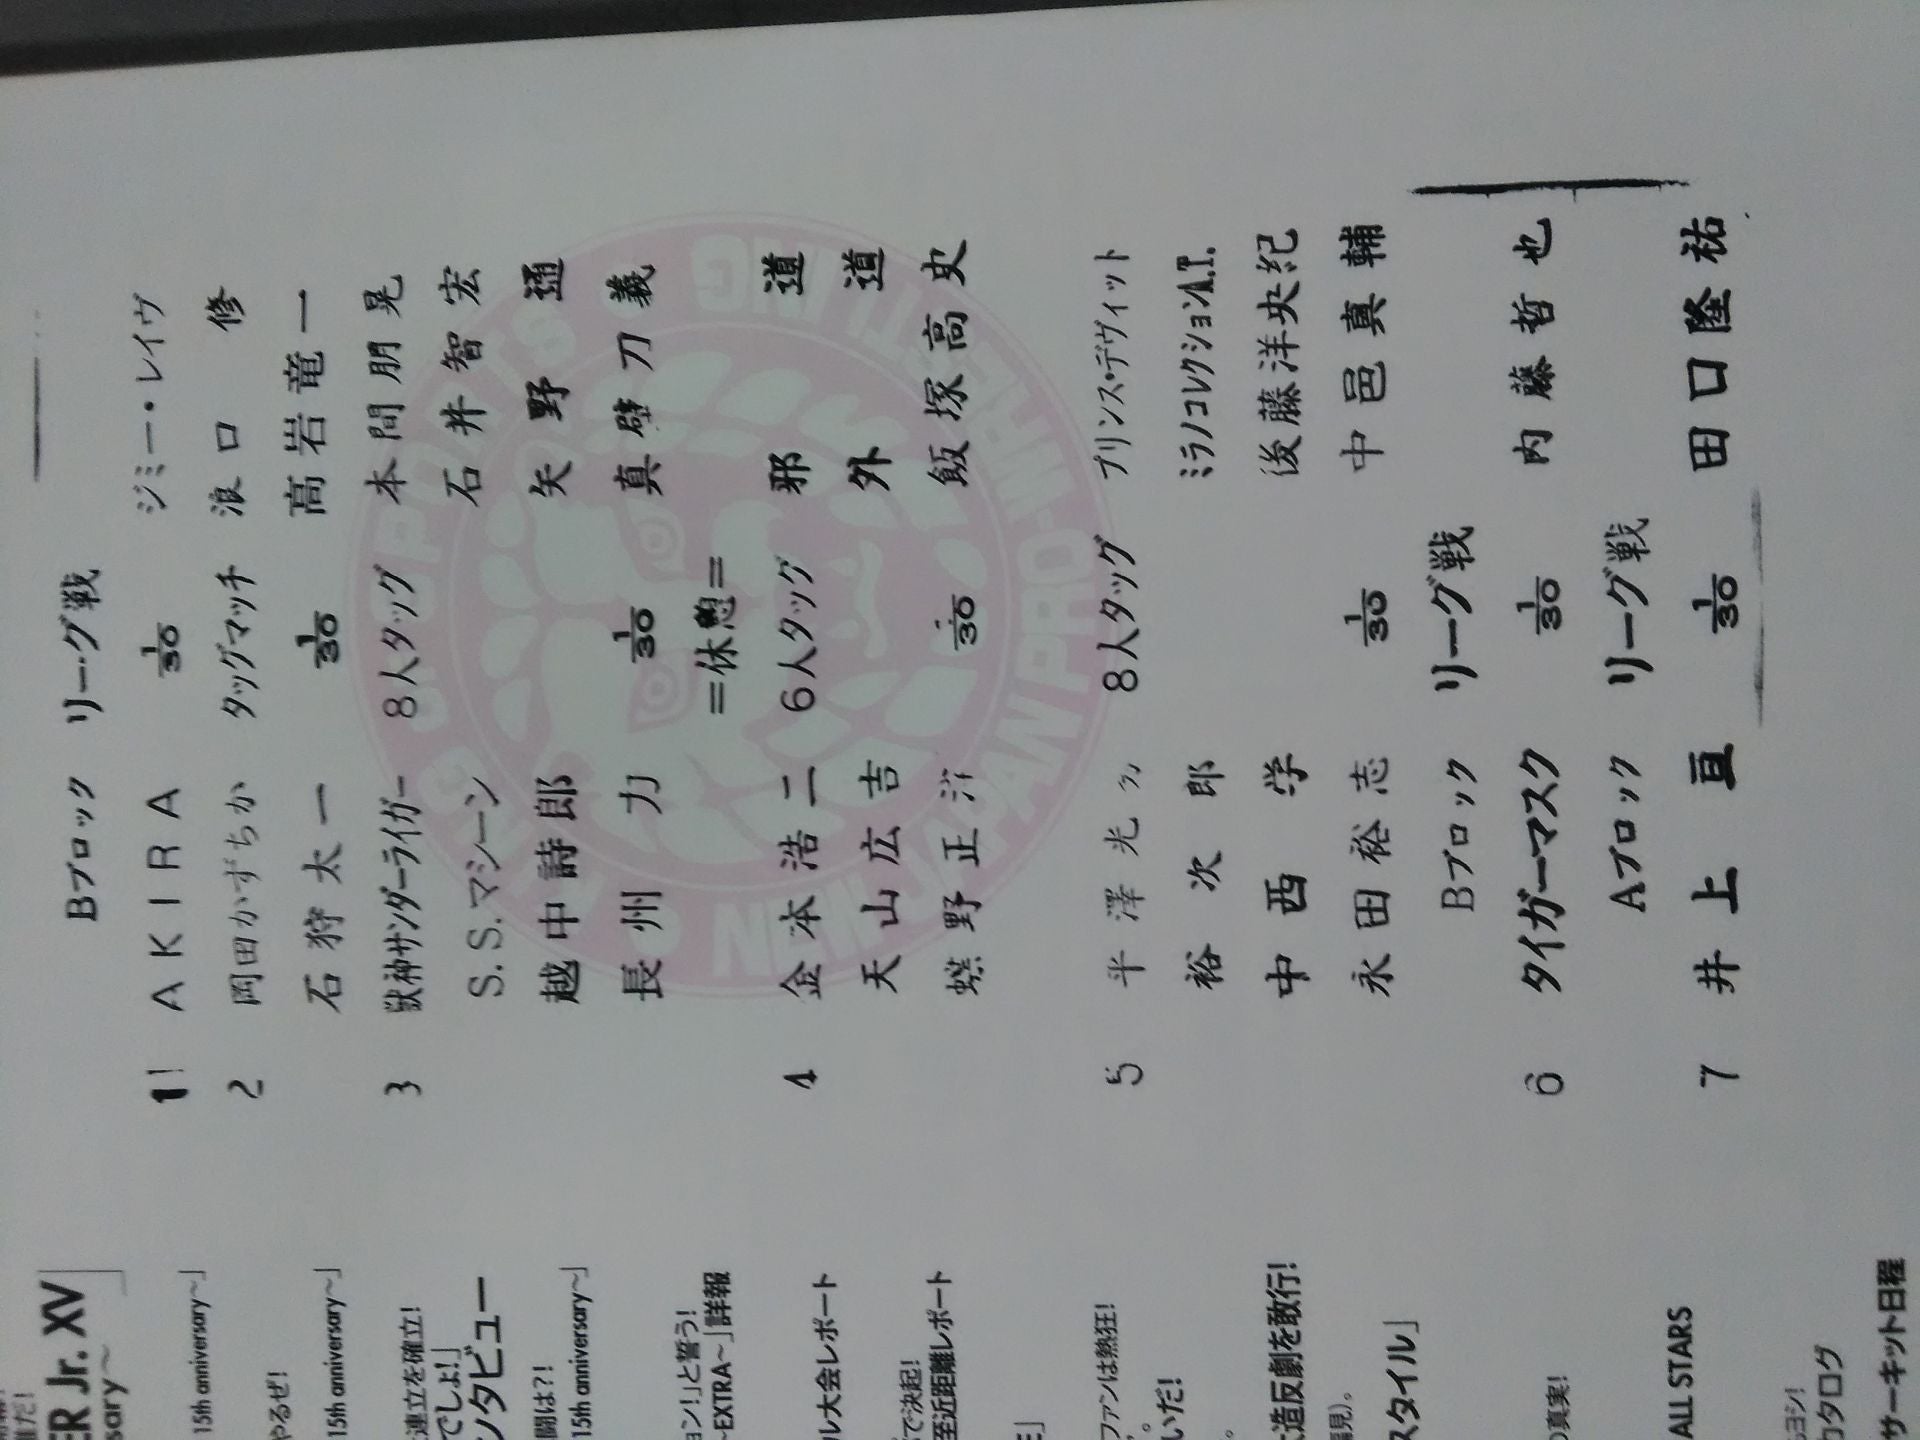 Bブロック リーグ戦
1 AKIRA 1/30 ジミー・レイヴ
2 岡田かずちか タッグマッチ 浪口 修
石狩太一 1/30 高岩竜一
3 獣神サンダーライガー 8人タッグ 本間朋晃
S.S.マシーン 石井智宏
越中詩郎 矢野 通
長州 力 1/30 真壁刀義
=休憩=
4 金本浩二 6人タッグ 邪道
天山広吉 外道
蝶野正洋 1/30 飯塚高史
5 平澤光 8人タッグ プリンス・デヴィット
裕次郎 ミラノコレクションA.T.
中西 学 後藤洋央紀
永田裕志 1/30 中邑真輔
Bブロック リーグ戦
6 タイガーマスク 1/30 内藤哲也
Aブロック リーグ戦
7 井上 亘 1/30 田口隆祐
ER Jr. XV」
sary～
15th anniversary～」
やるぜ!
15th anniversary～」
連立を確立!
でしょ!」
ンタビュー
闘は?!
15th anniversary～」
ョン!」と誓う!
～EXTRA～」詳報
ル大会レポート
で決起!
至近距離レポート
」
ファンは熱狂!
。
いだ!
。
造反劇を敢行!
見)。
スタイル」
の真実!
ALL STARS
ヨシ!
カタログ
サーキット日程
NEW JAPAN PRO-WRESTLING
KING OF SPORTS